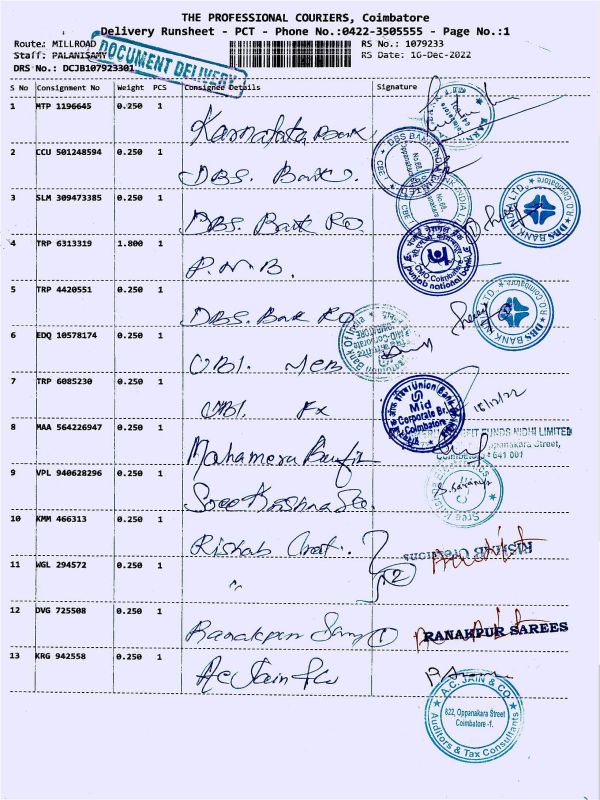 THE PROFESSIONAL COURIERS, Coimbatore
Delivery Runsheet - PCT - Phone No.:0422-3505555 - Page No.:1
Route: MILLROAD RS No.: 1079233
Staff: PALANISAMY RS Date: 16-Dec-2022
DRS No.: DCJB107923301
DOCUMENT DELIVERY
S No Consignment No Weight PCS Consignee Details Signature
1 MTP 1196645 0.250 1 Karnataka Bank
2 CCU 501248594 0.250 1 DBS. Bank.
DBS BANK INDIA LIMITED
No.66, Oppanakara
3 SLM 309473385 0.250 1 DBS. Bank RO
DBS BANK INDIA LTD., R O Coimbatore
4 TRP 6313319 1.800 1 P.N.B.
CMO Coimbatore
punjab national bank
5 TRP 4420551 0.250 1 DBS. Bank RO
DBS BANK INDIA LTD., R O Coimbatore
6 EDQ 10578174 0.250 1 UBI. MCB
Union Bank Of India
7 TRP 6085230 0.250 1 UBI. Fx
Union Bank
Mid
Corporate Br.
Coimbatore
16/12/22
8 MAA 564226947 0.250 1 Mahameru Benefit
FIT FUNDS NIDHI LIMITED
Oppanakara Street,
Coimbatore - 641 001
9 VPL 940628296 0.250 1 Sree Krishna
10 KMM 466313 0.250 1 Rishab Creat.
RISHAB Creations
11 WGL 294572 0.250 1 " 2
12 DVG 725508 0.250 1 Ranakpur 1
RANAKPUR SAREES
13 KRG 942558 0.250 1 A.C Jain & Co
A.C. JAIN & CO
822, Oppanakara Street
Coimbatore -1.
Auditors & Tax Consultants